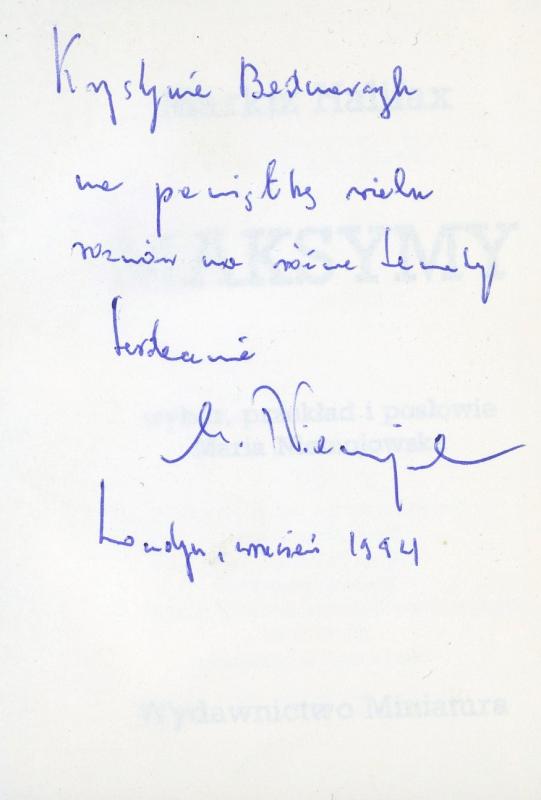 Krystynie Bednarczyk
na pamiątkę wielu
rozmów na różne tematy
serdecznie
M. Niemoj
Londyn, wrzesień 1994
MAKSYMY
wybór, przekład i posłowie
Maria Niemojowska
Wydawnictwo Miniatura